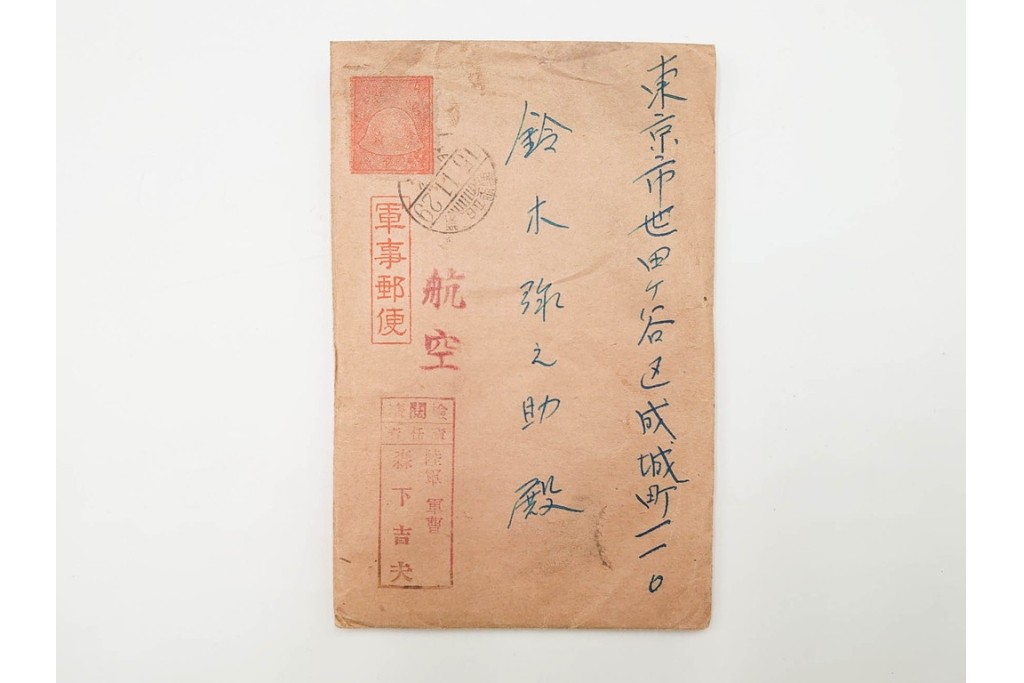 東京市世田ケ谷区成城町一一〇
鈴木弥之助殿
15.11.29
軍事郵便
航空
検閲済
責任者
陸軍軍曹
森下吉夫